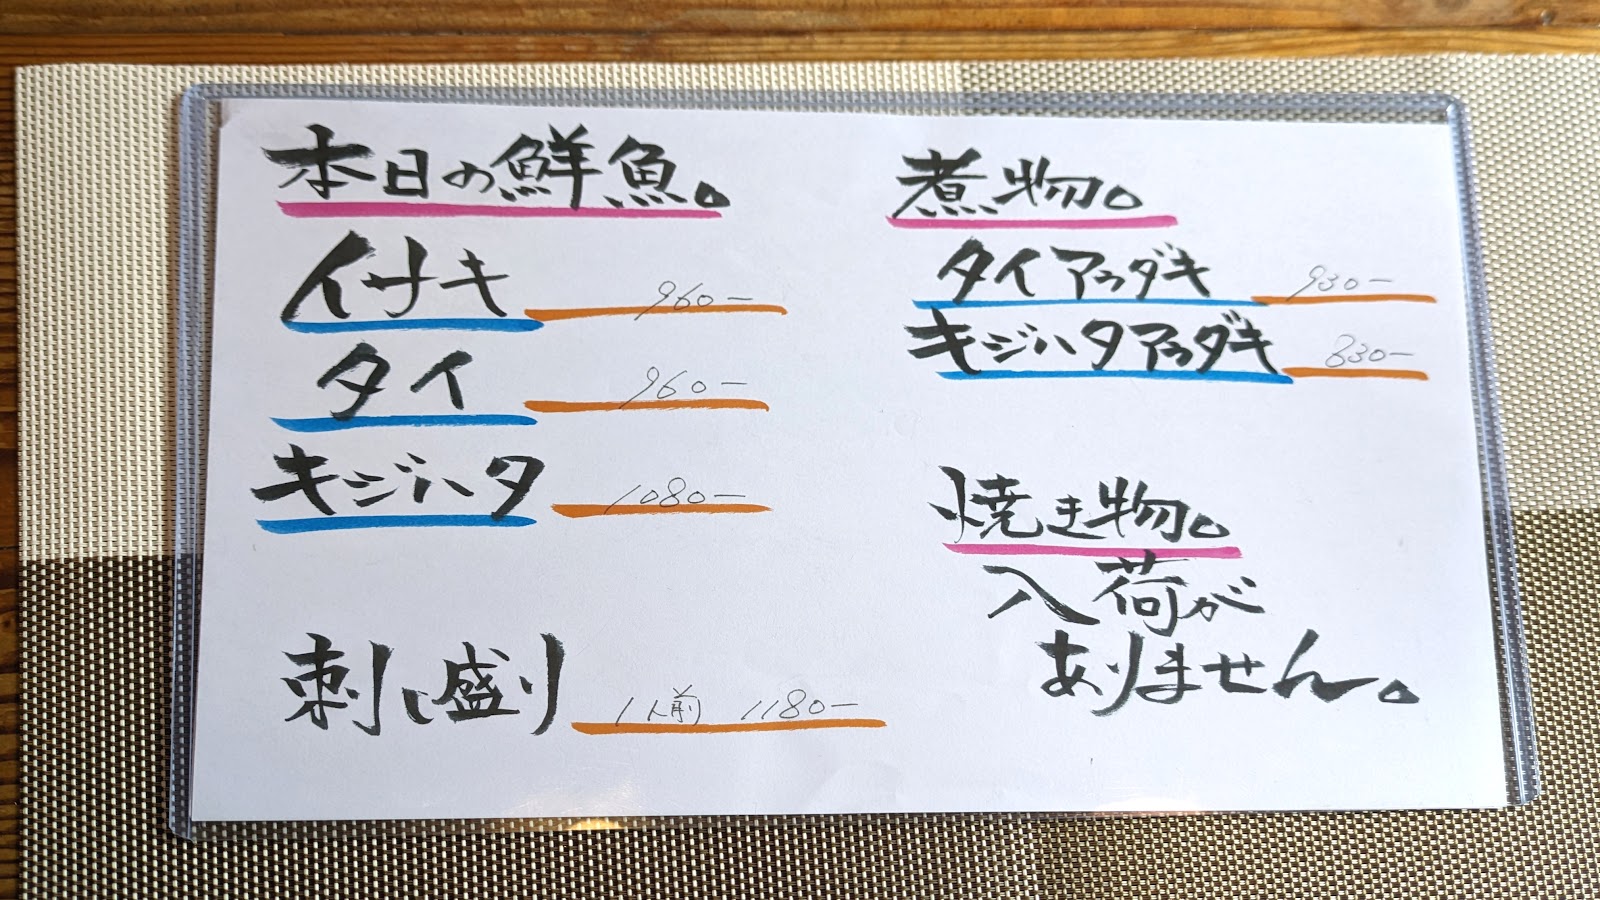 本日の鮮魚。
イサキ 960-
タイ 960-
キジハタ 1080-
刺し盛り 1人前 1180-
煮物。
タイアラダキ 930-
キジハタアラダキ 830-
焼き物。
入荷が
ありません。